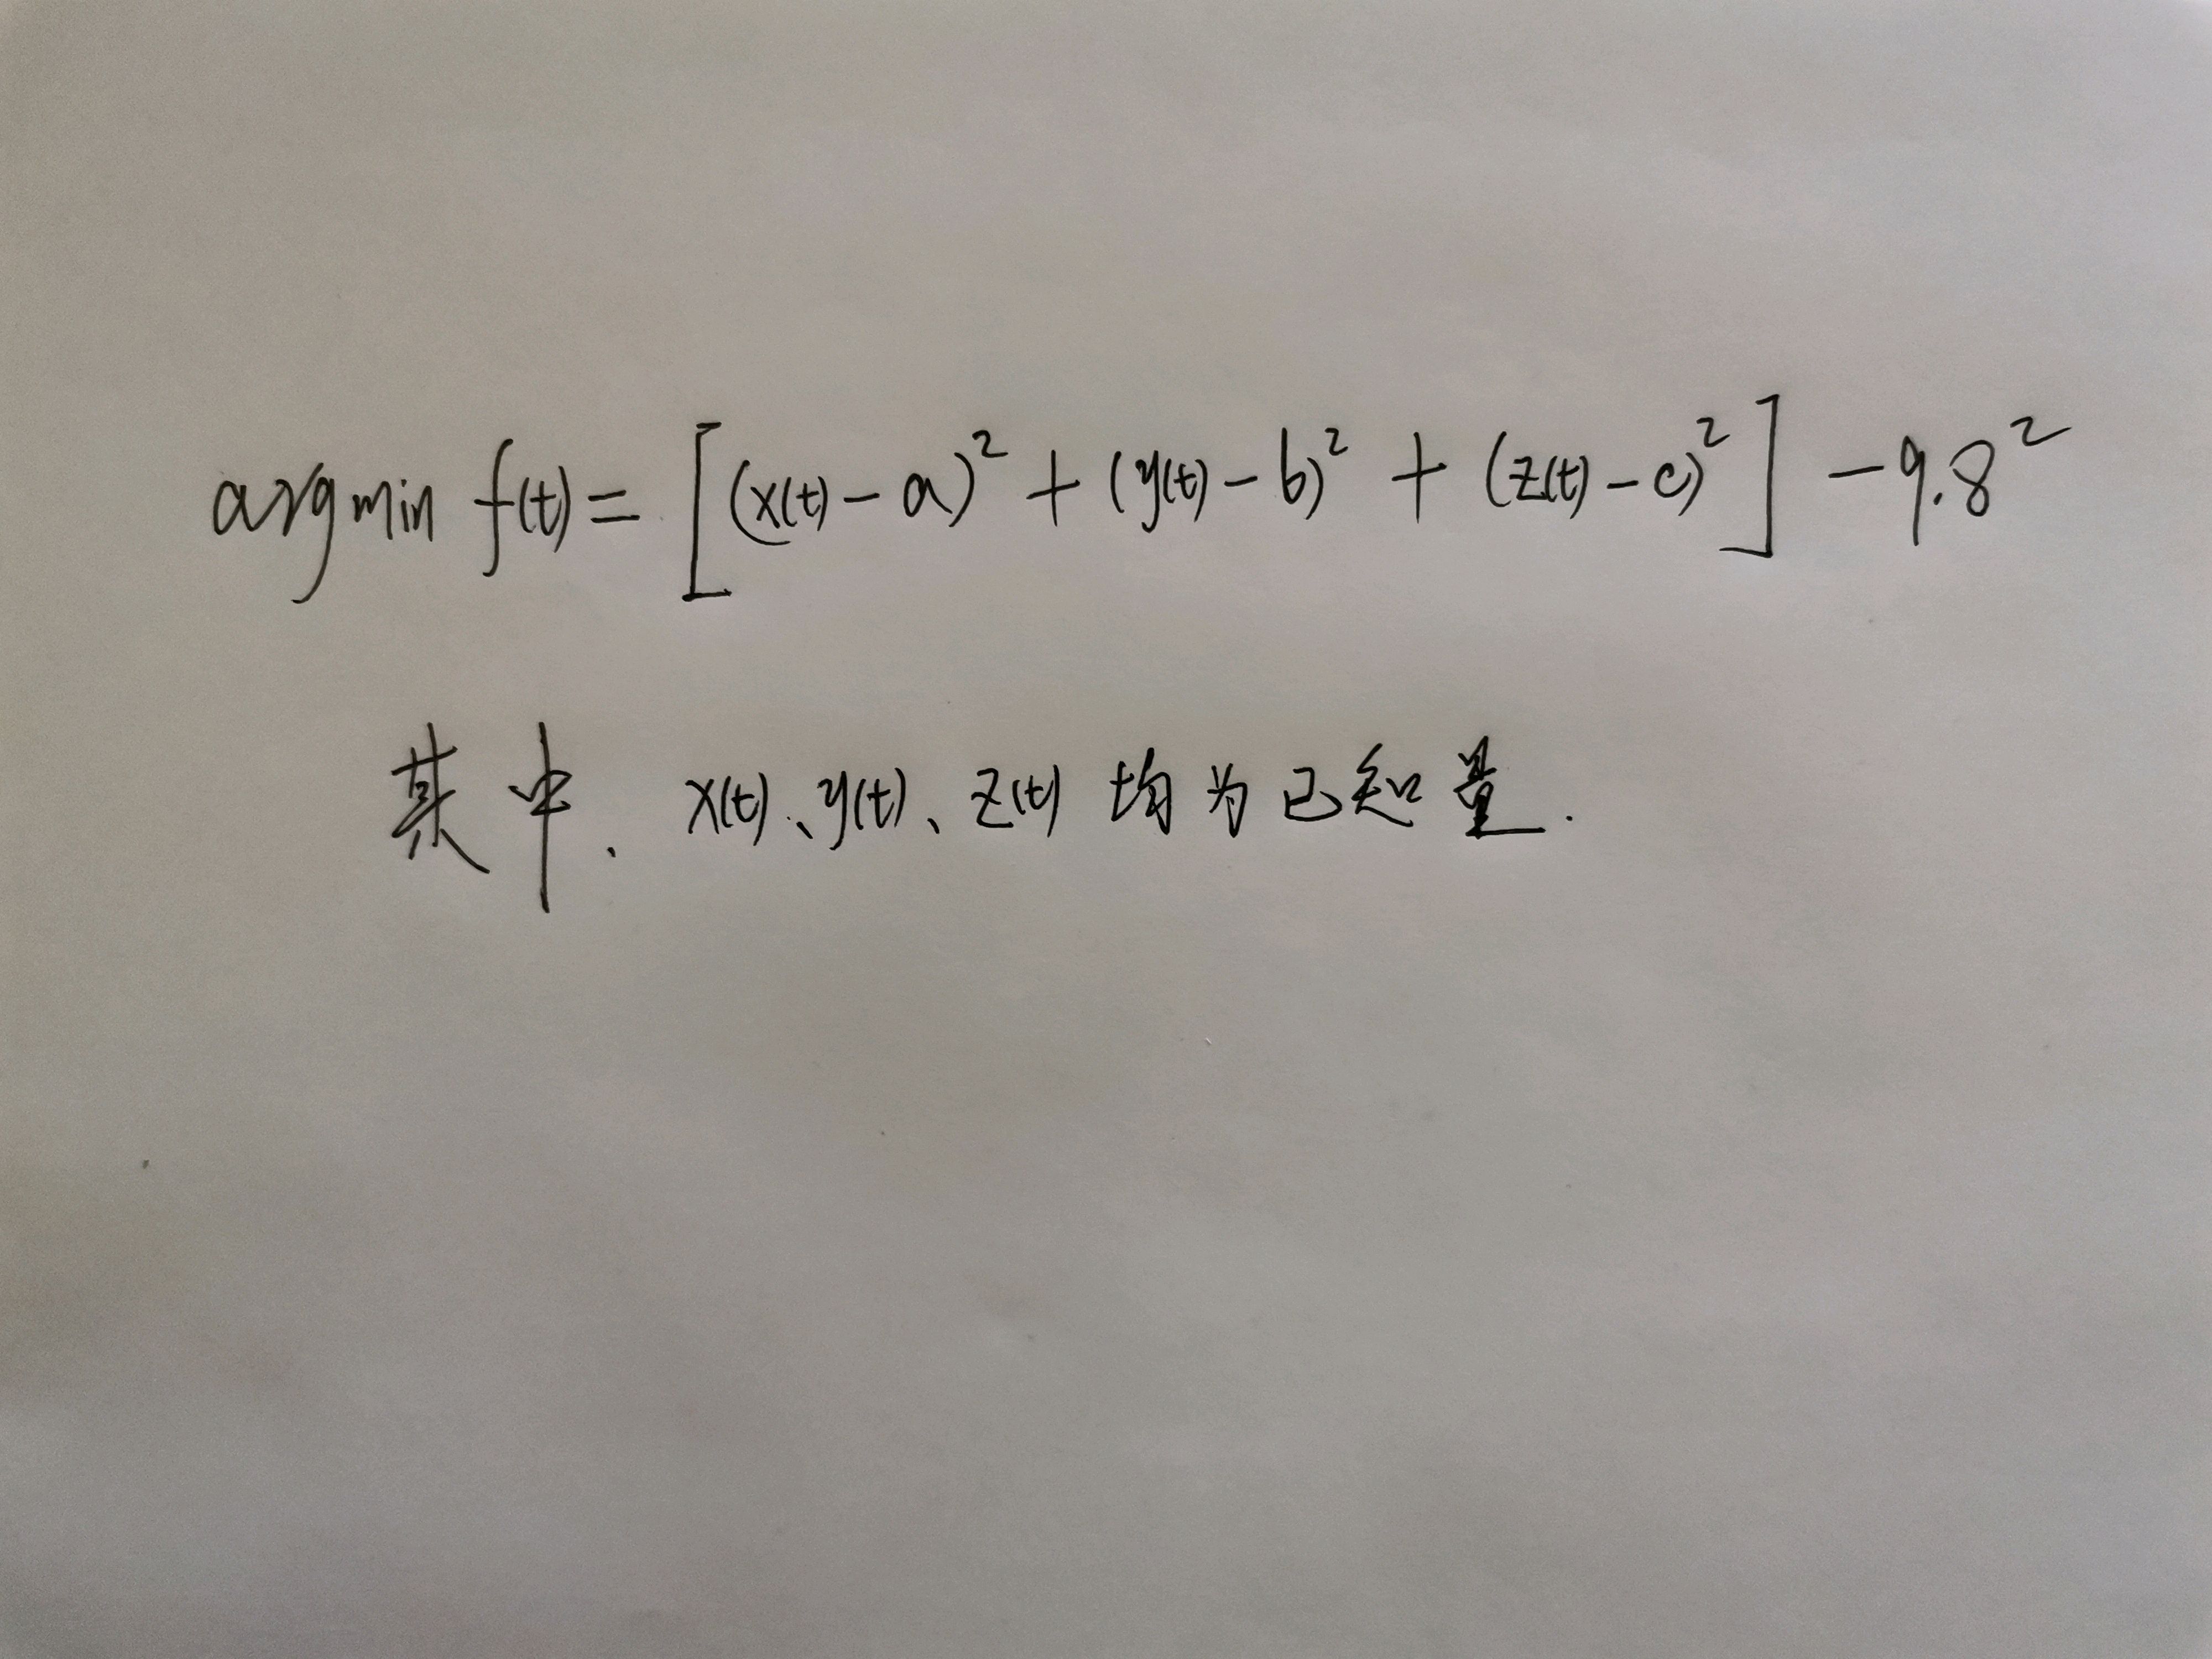 arg min f(t) = [(x(t) - a)² + (y(t) - b)² + (z(t) - c)²] - 9.8²
其中、x(t)、y(t)、z(t) 均为已知量.